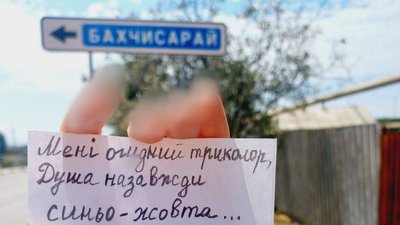 БАХЧИСАРАЙ
Мені огидний триколор,
Душа назавжди
синьо-жовта...